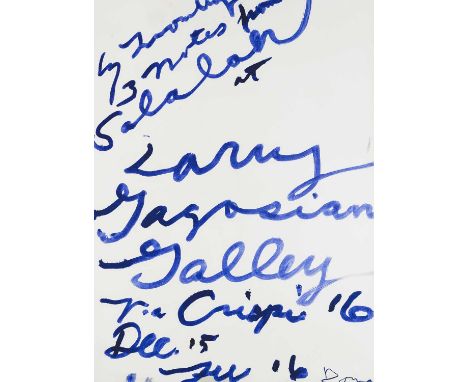 Cy Twombly
3 notes from
Salalah
at
Larry
Gagosian
Galley
Via Crispi 16
Dec. 15
16